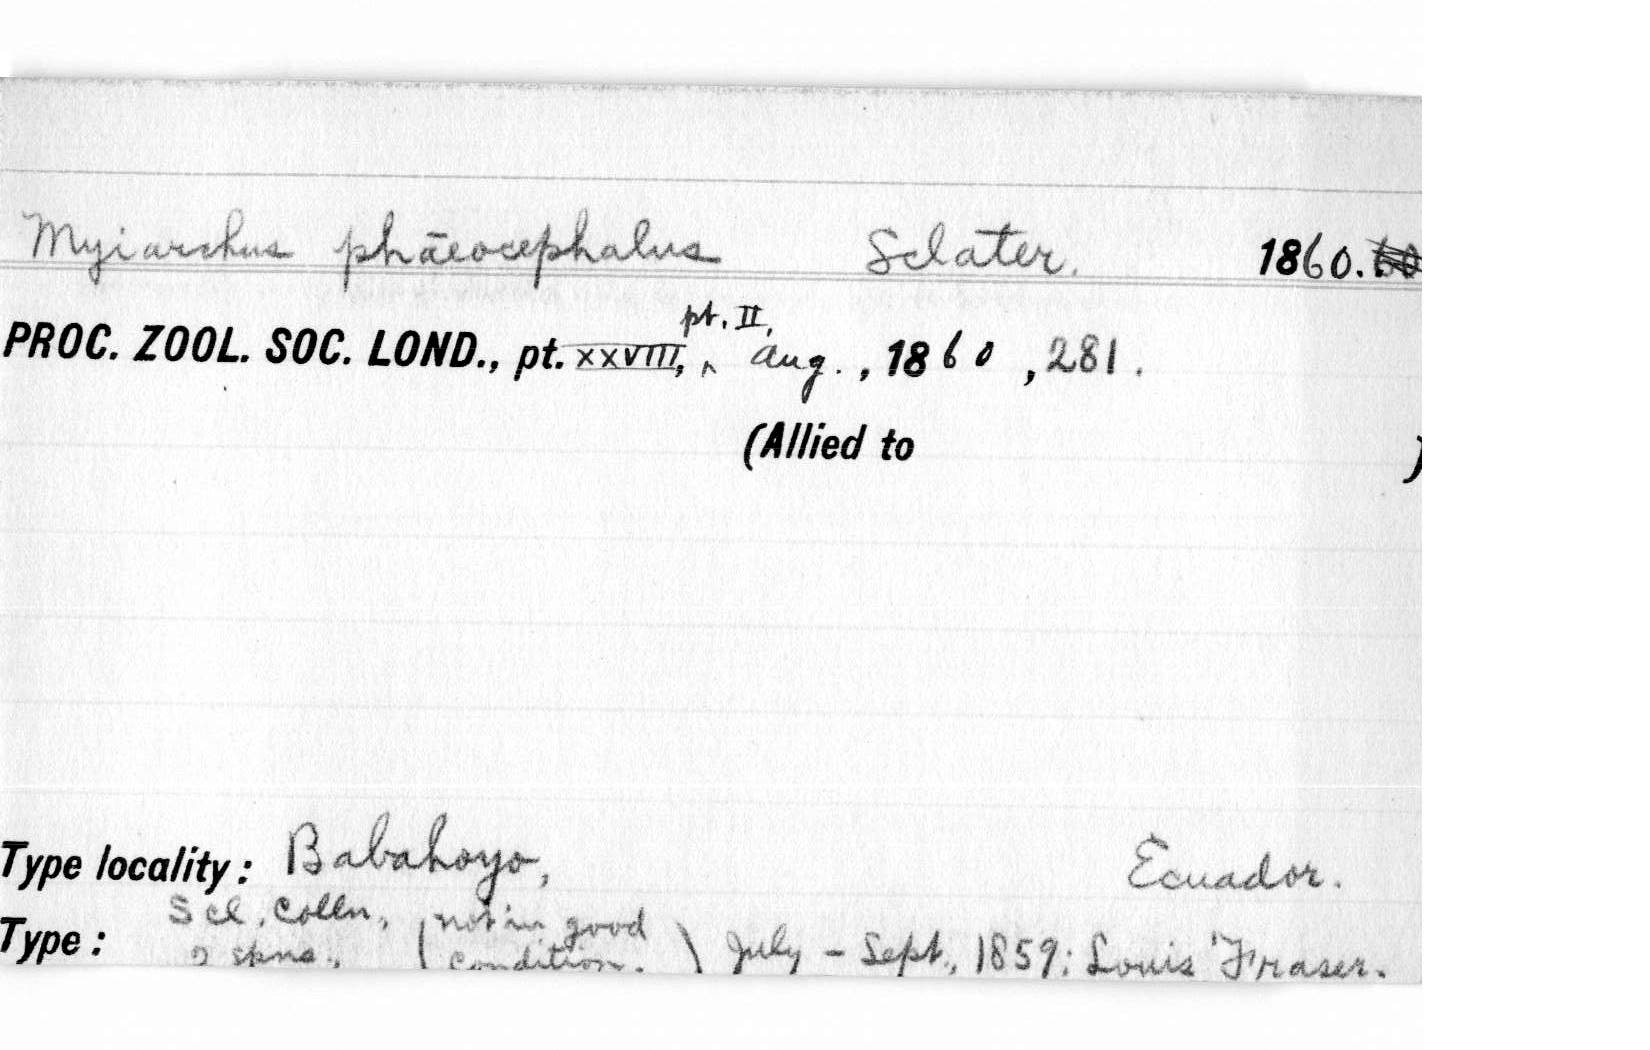 Myiarchus phāeocephalus Sclater. 1860.
pt. II,
PROC. ZOOL. SOC. LOND., pt. XXVIII, ‸ Aug. , 1860 , 281 .
(Allied to )
Type locality : Babahoyo, Ecuador.
Scl. Colln., (not in good
Type : 2 spms., condition.) July - Sept., 1859; Louis Fraser.